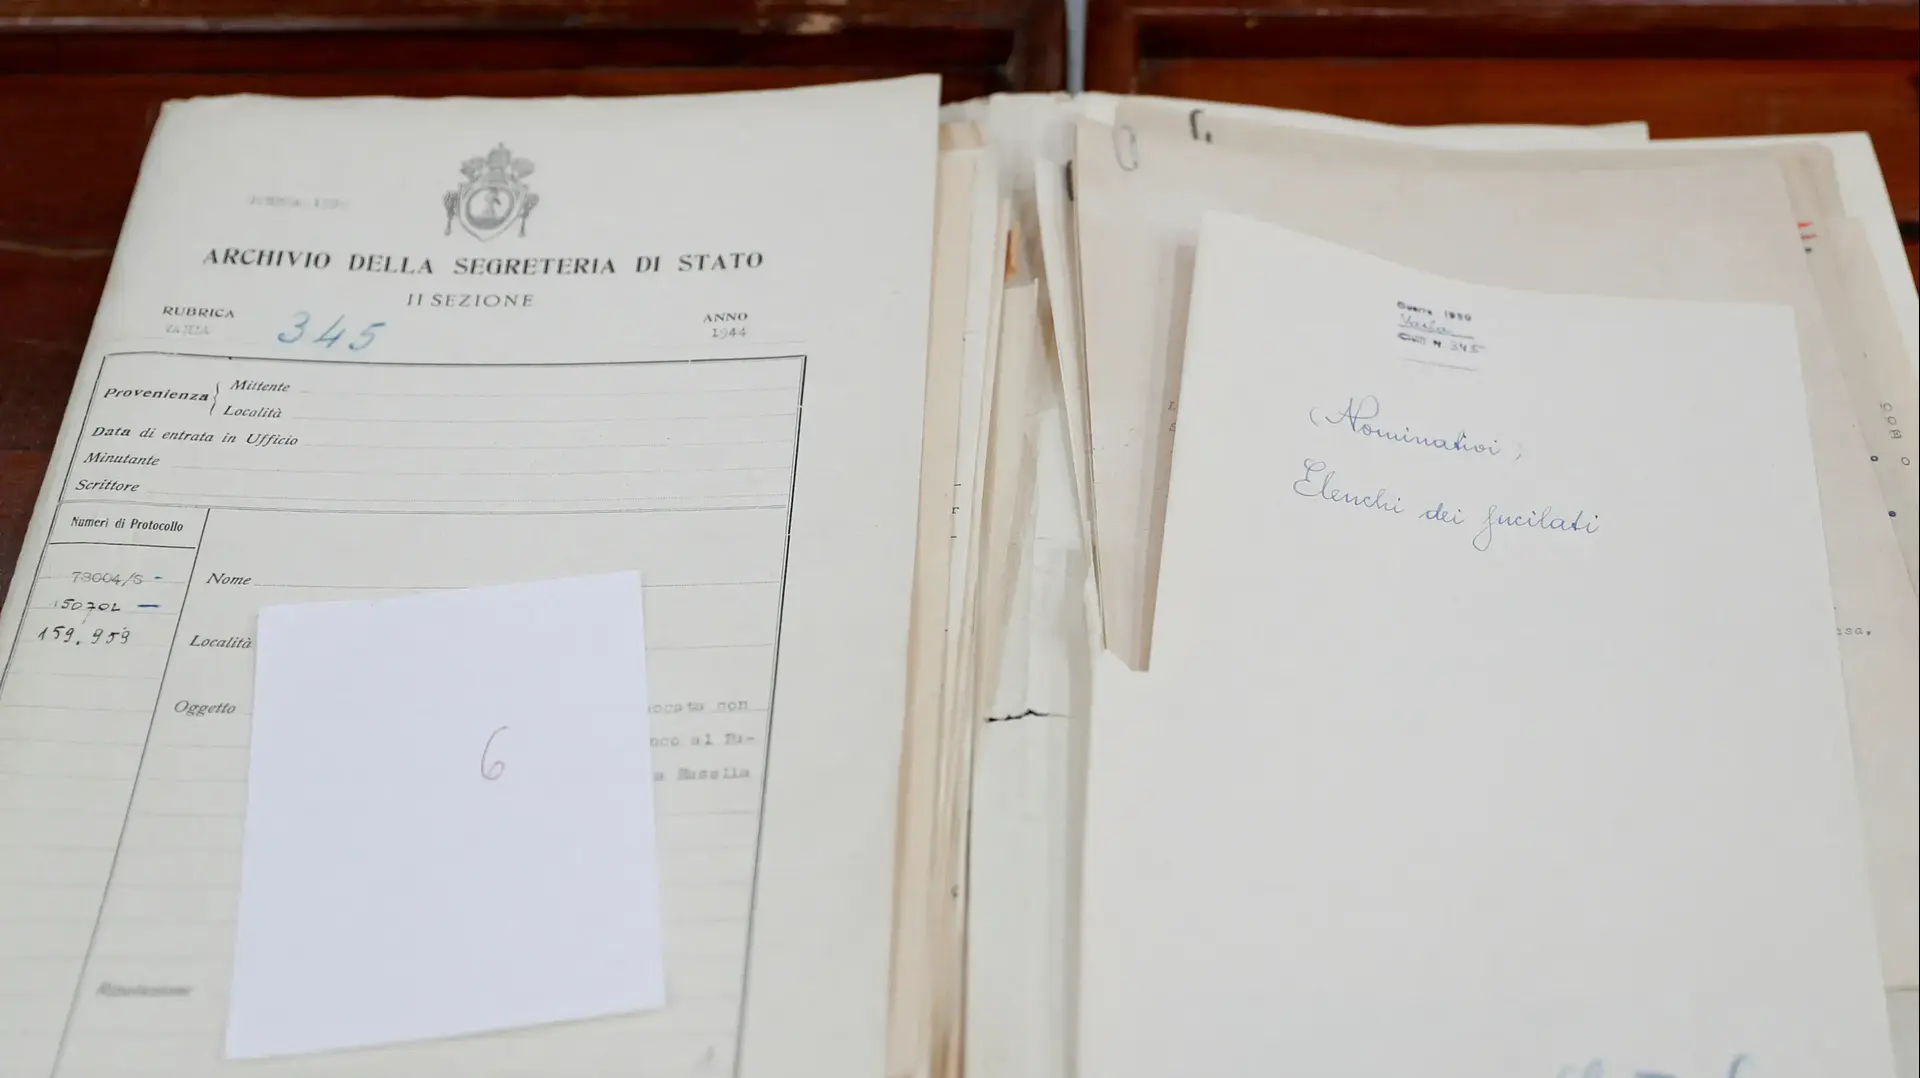 ARCHIVIO DELLA SEGRETERIA DI STATO
II SEZIONE
RUBRICA
345
ANNO
1944
Provenienza
Mittente
Località
Data di entrata in Ufficio
Minutante
Scrittore
Numeri di Protocollo
73004/S -
150702 —
159.959
Nome
Località
Oggetto
ocata con
nco al Bi-
6
Guerra 1939
N 345
(Nominativi)
Elenchi dei fucilati